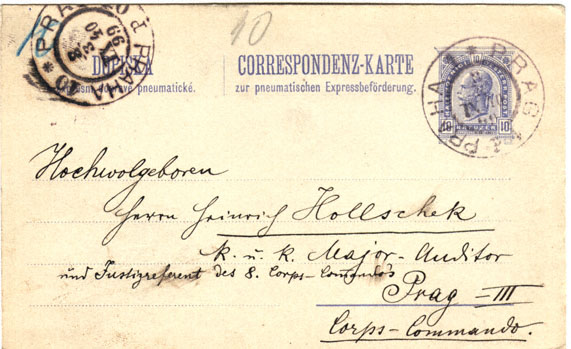 10
PRAG 10 PRAHA
3 40
IX 99
CORRESPONDENZ-KARTE
dopravě pneumatické.
zur pneumatischen Expressbeförderung.
PRAG PRAHA
10 KREUZER 10
Hochwolgeboren
Herrn Heinrich Hollschek
k. u. k. Major-Auditor
und Justizreferent des 8. Corps-Commando's
Prag-III
Corps-Commando.